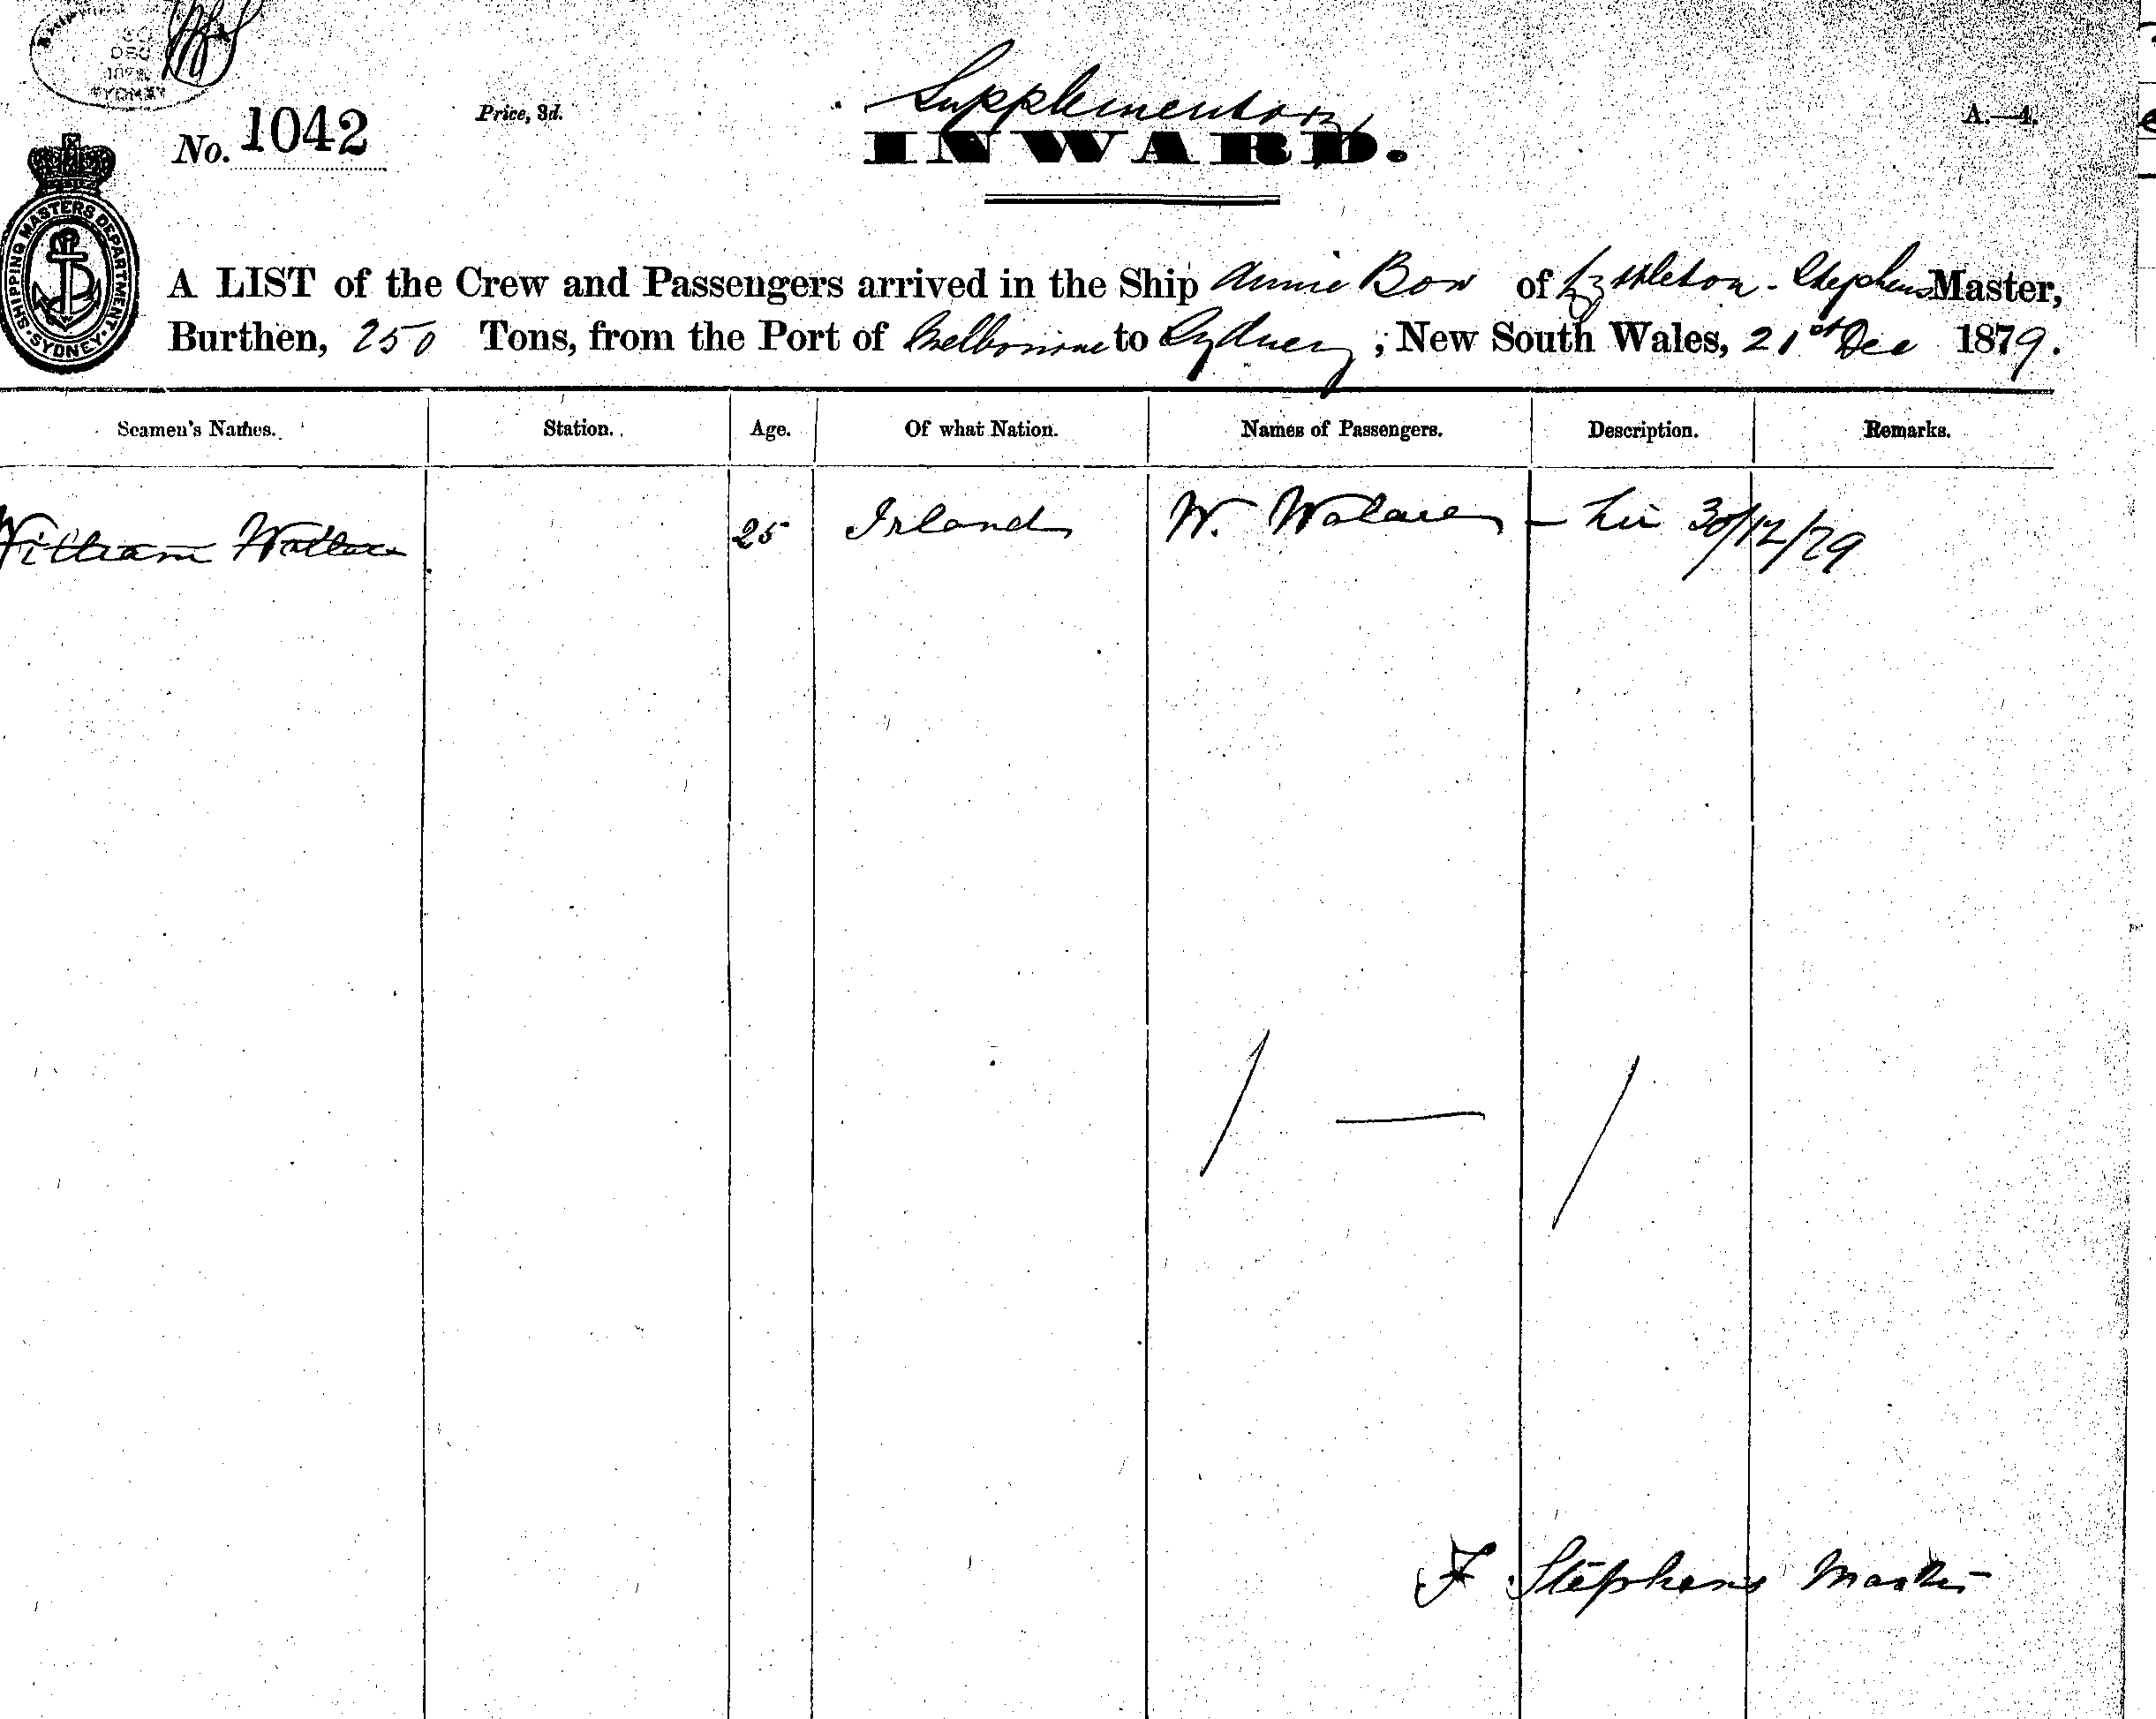 DEC
SYDNEY
No. 1042
Price, 3d.
Supplementary
A.—4.
INWARD.
SHIPPING MASTERS DEPARTMENT · SYDNEY ·
A LIST of the Crew and Passengers arrived in the Ship Annie Bow of Lyttleton - Stephens Master,
Burthen, 250 Tons, from the Port of Melbourne to Sydney ; New South Wales, 21st Dec 1879.
Seamen's Names. Station. Age. Of what Nation. Names of Passengers. Description. Remarks.
William Wallace 25 Irland W. Walace - 30/12/79
F Stephens Master